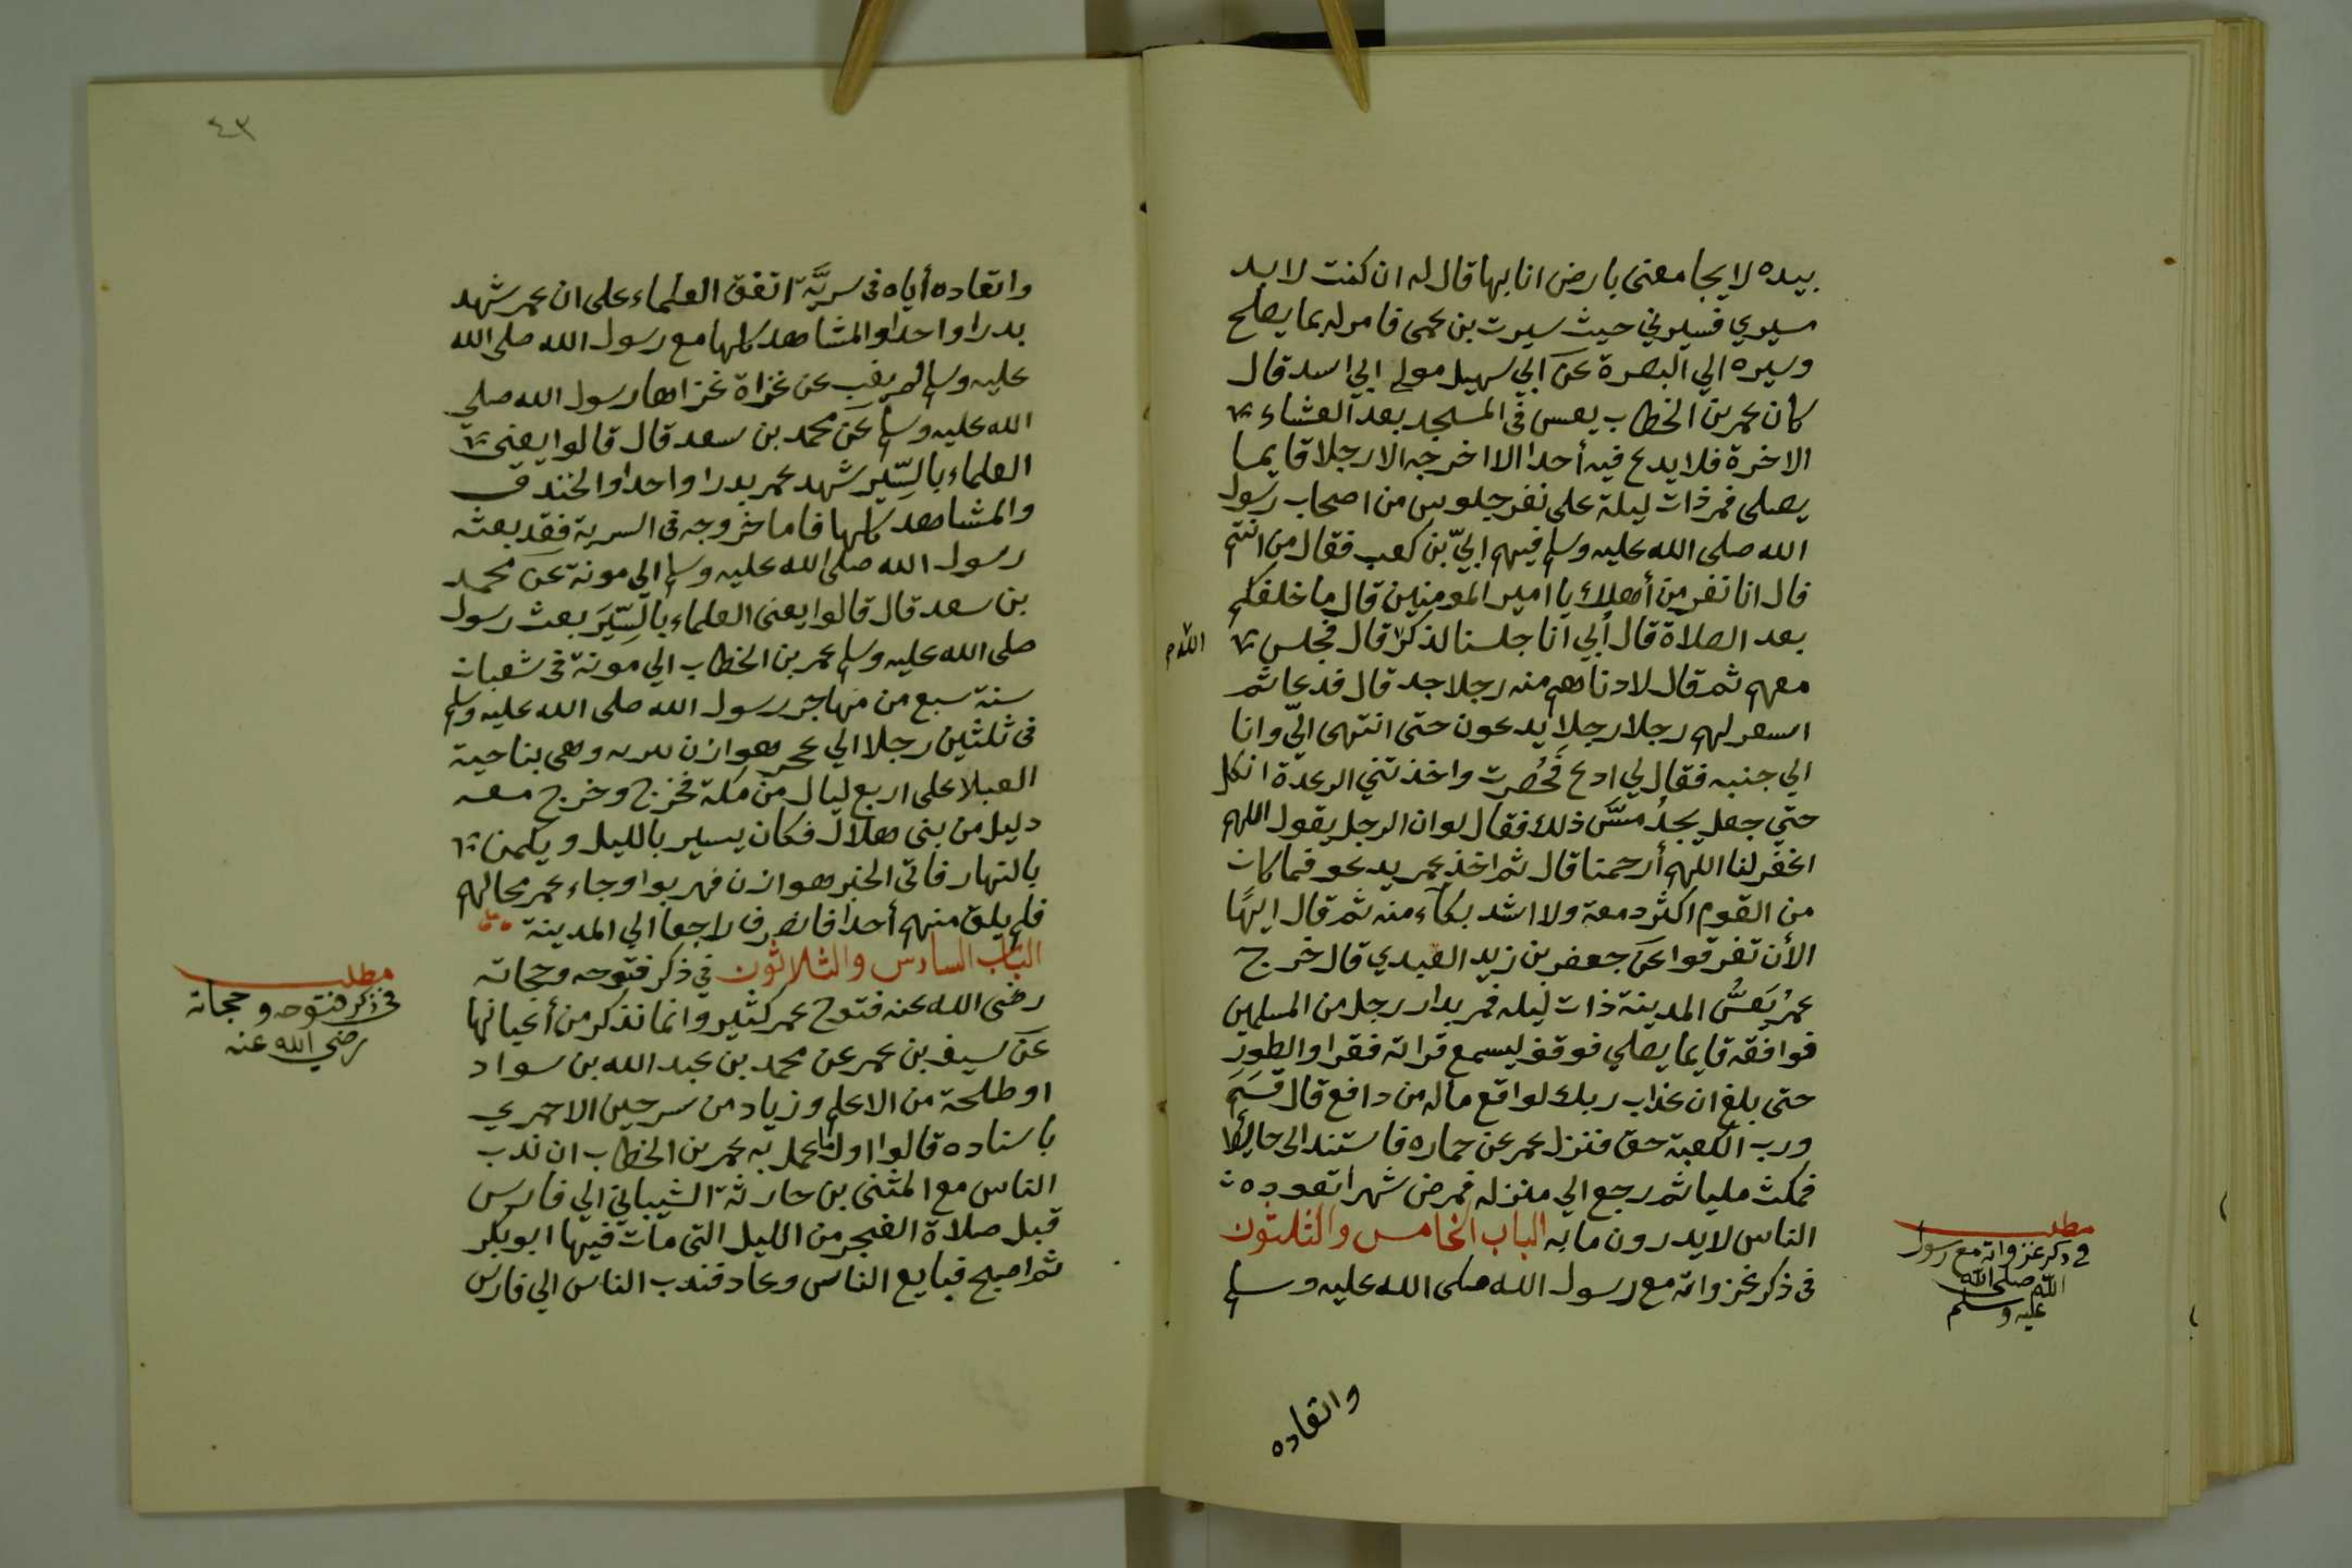 بيده لا يجامعنى بارض انا بها قال له ان كنت لا بد
مسيري فسيرني حيث سيرت بن عمى فامر له بما يصلح
وسيره الي البصرة عن ابي سهيل مولي ابي اسد قال
كان عمر بن الخطاب يعس فى المسجد بعد العشاء
الاخرة فلا يدع فيه أحدا الا اخرجه الا رجلا قايما
يصلى فمر ذات ليلة على نفر جلوس من اصحاب رسول
الله صلى الله عليه وسلم فيهم ابيّ بن كعب فقال من انتم
قال انا نفر من أهلك يا امير المومنين قال ما خلفكم
بعد الصلاة قال أبي انا جلسنا لذكر قال فجلس
اللّه م
معهم ثم قال لادناهم منه رجلا جد قال فدعا ثم
اسعر لهم رجلا رجلا يدعون حتى انتهى اليّ وانا
الي جنبه فقال لي ادع فَحُصرت واخذتني الرعدة انكل
حتي جعل يجدُ مسَّ ذلك فقال لو ان الرجل يقول اللهم
اغفر لنا اللهم أرحمنا قال ثم اخذ عمر يدعو فما كان
من القوم اكثر دمعة ولا اشد بكآء منه ثم قال ايهًا
الأن تفرقوا عن جعفر بن زيد العبدي قال خرج
عمرُ يَعسُّ المدينة ذات ليله فمر بدار رجل من المسلمين
فوافقه قايما يصلي فوقف ليسمع قراته فقرا والطور
حتى بلغ ان عذاب ربك لواقع ماله من دافع قال قسَمَ
ورب الكعبة حق فنزل عمر عن حماره فاستند الى حايط
فمكث مليا ثم رجع الي منزله فمرض شهرا تعوده
الناس لا يدرون ما به الباب الخامس والثلثون
فى ذكر غزواته مع رسول الله صلى الله عليه وسلم
مطلب
في ذكر غزواته مع رسول
اللّه صلى اللّه
عليه وسلم
واتعاده
٤٣
واتعاده أياه فى سريَّة اتفق العلماء على ان عمر شهد
بدرا واحدا والمشاهد كلها مع رسول الله صلى الله
عليه وسلم لم يغب عن غزاة غزاها رسول الله صلي
الله عليه وسلم عن محمد بن سعد قال قالوا يعنى
العلماء بالسِّيَر شهد عمر بدرا واحدا والخندق
والمشاهد كلها فاما خروجه فى السرية فقد بعثه
رسول الله صلى الله عليه وسلم الي مونة عن محمد
بن سعد قال قالوا يعنى العلماء بالسِّيَر بعث رسول
صلى الله عليه وسلم عمر بن الخطاب الي مونة فى شعبان
سنة سبع من مهاجر رسول الله صلى الله عليه وسلم
فى ثلثين رجلا الي عجر هوازن بتربه وهى بناحية
العبلا على اربع ليال من مكة فخرج وخرج معه
دليل من بنى هلال فكان يسير بالليل ويكمن
بالنهار فاتى الخبر هوازن فهربوا وجاء عمر محالهم
فلم يلق منهم أحدا فانصرف راجعا الي المدينة
الباب السادس والثلاثون في ذكر فتوحه وحجاته
رضى الله عنه فتوح عمر كثير وانما نذكر من أعيانها
عن سيف بن عمر عن محمد بن عبد الله بن سواد
او طلحة من الاعلم وزياد من سرجين الاحمري
باسناده قالوا اول ما عمل به عمر بن الخطاب ان ندب
الناس مع المثنى بن حارثة الشيباني الي فارس
قبل صلاة الفجر من الليل التى مات فيها ابو بكر
ثم اصبح فبايع الناس وعاد فندب الناس الي فارس
مطلب
فى ذكر فتوحه وحجاته
رضي الله عنه